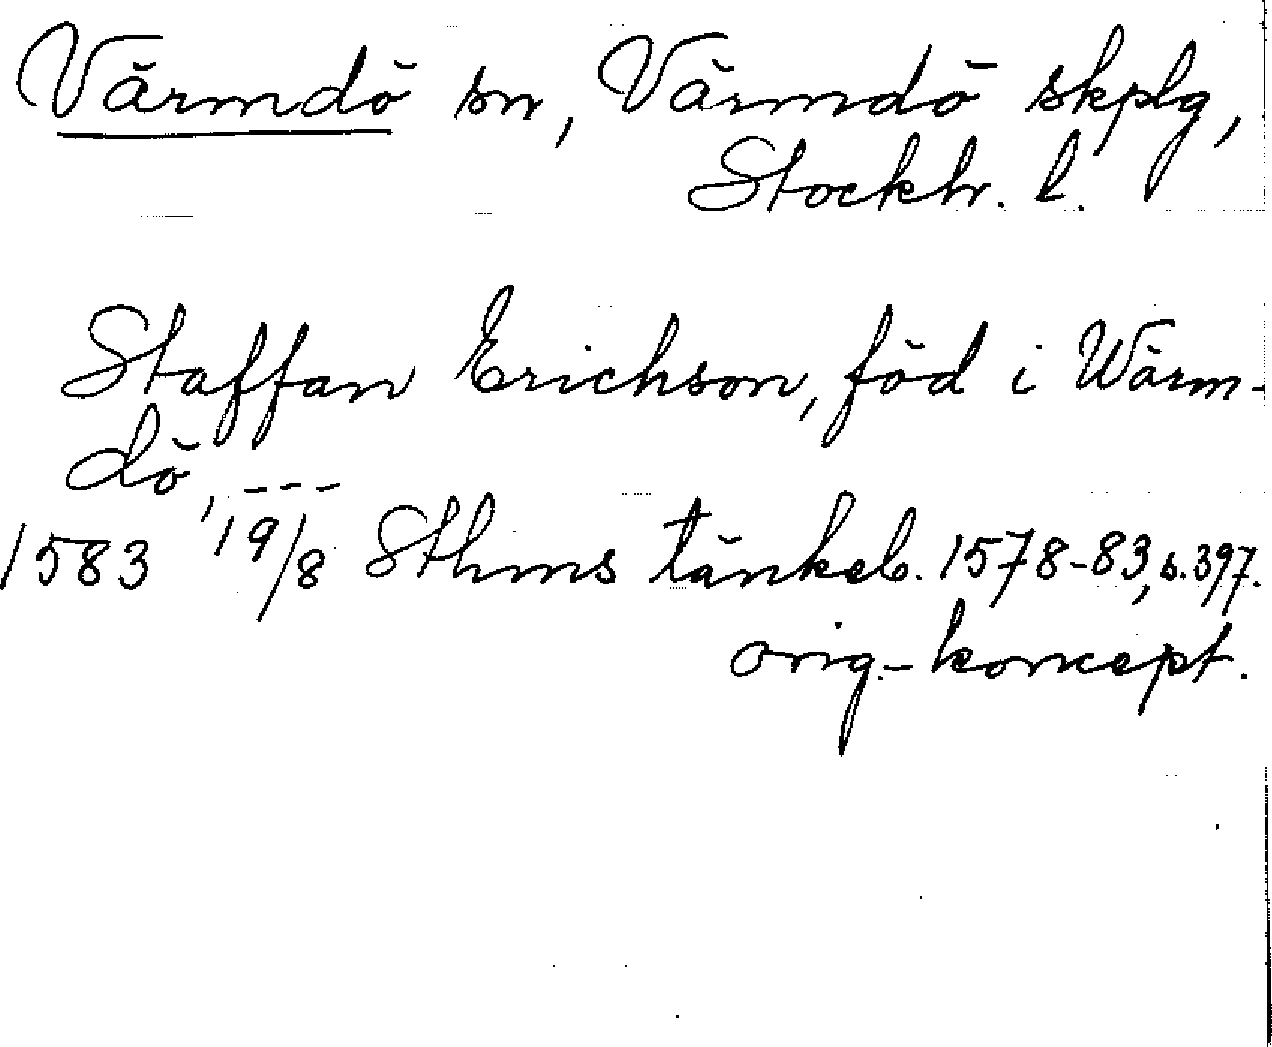 Värmdö sn, Värmdö skplg,
Stockh. l.
Staffan Erichson, föd i Wärm-
dö, ---
1583 19/8 Sthms tänkeb. 1578-83, s. 397.
orig.-koncept.